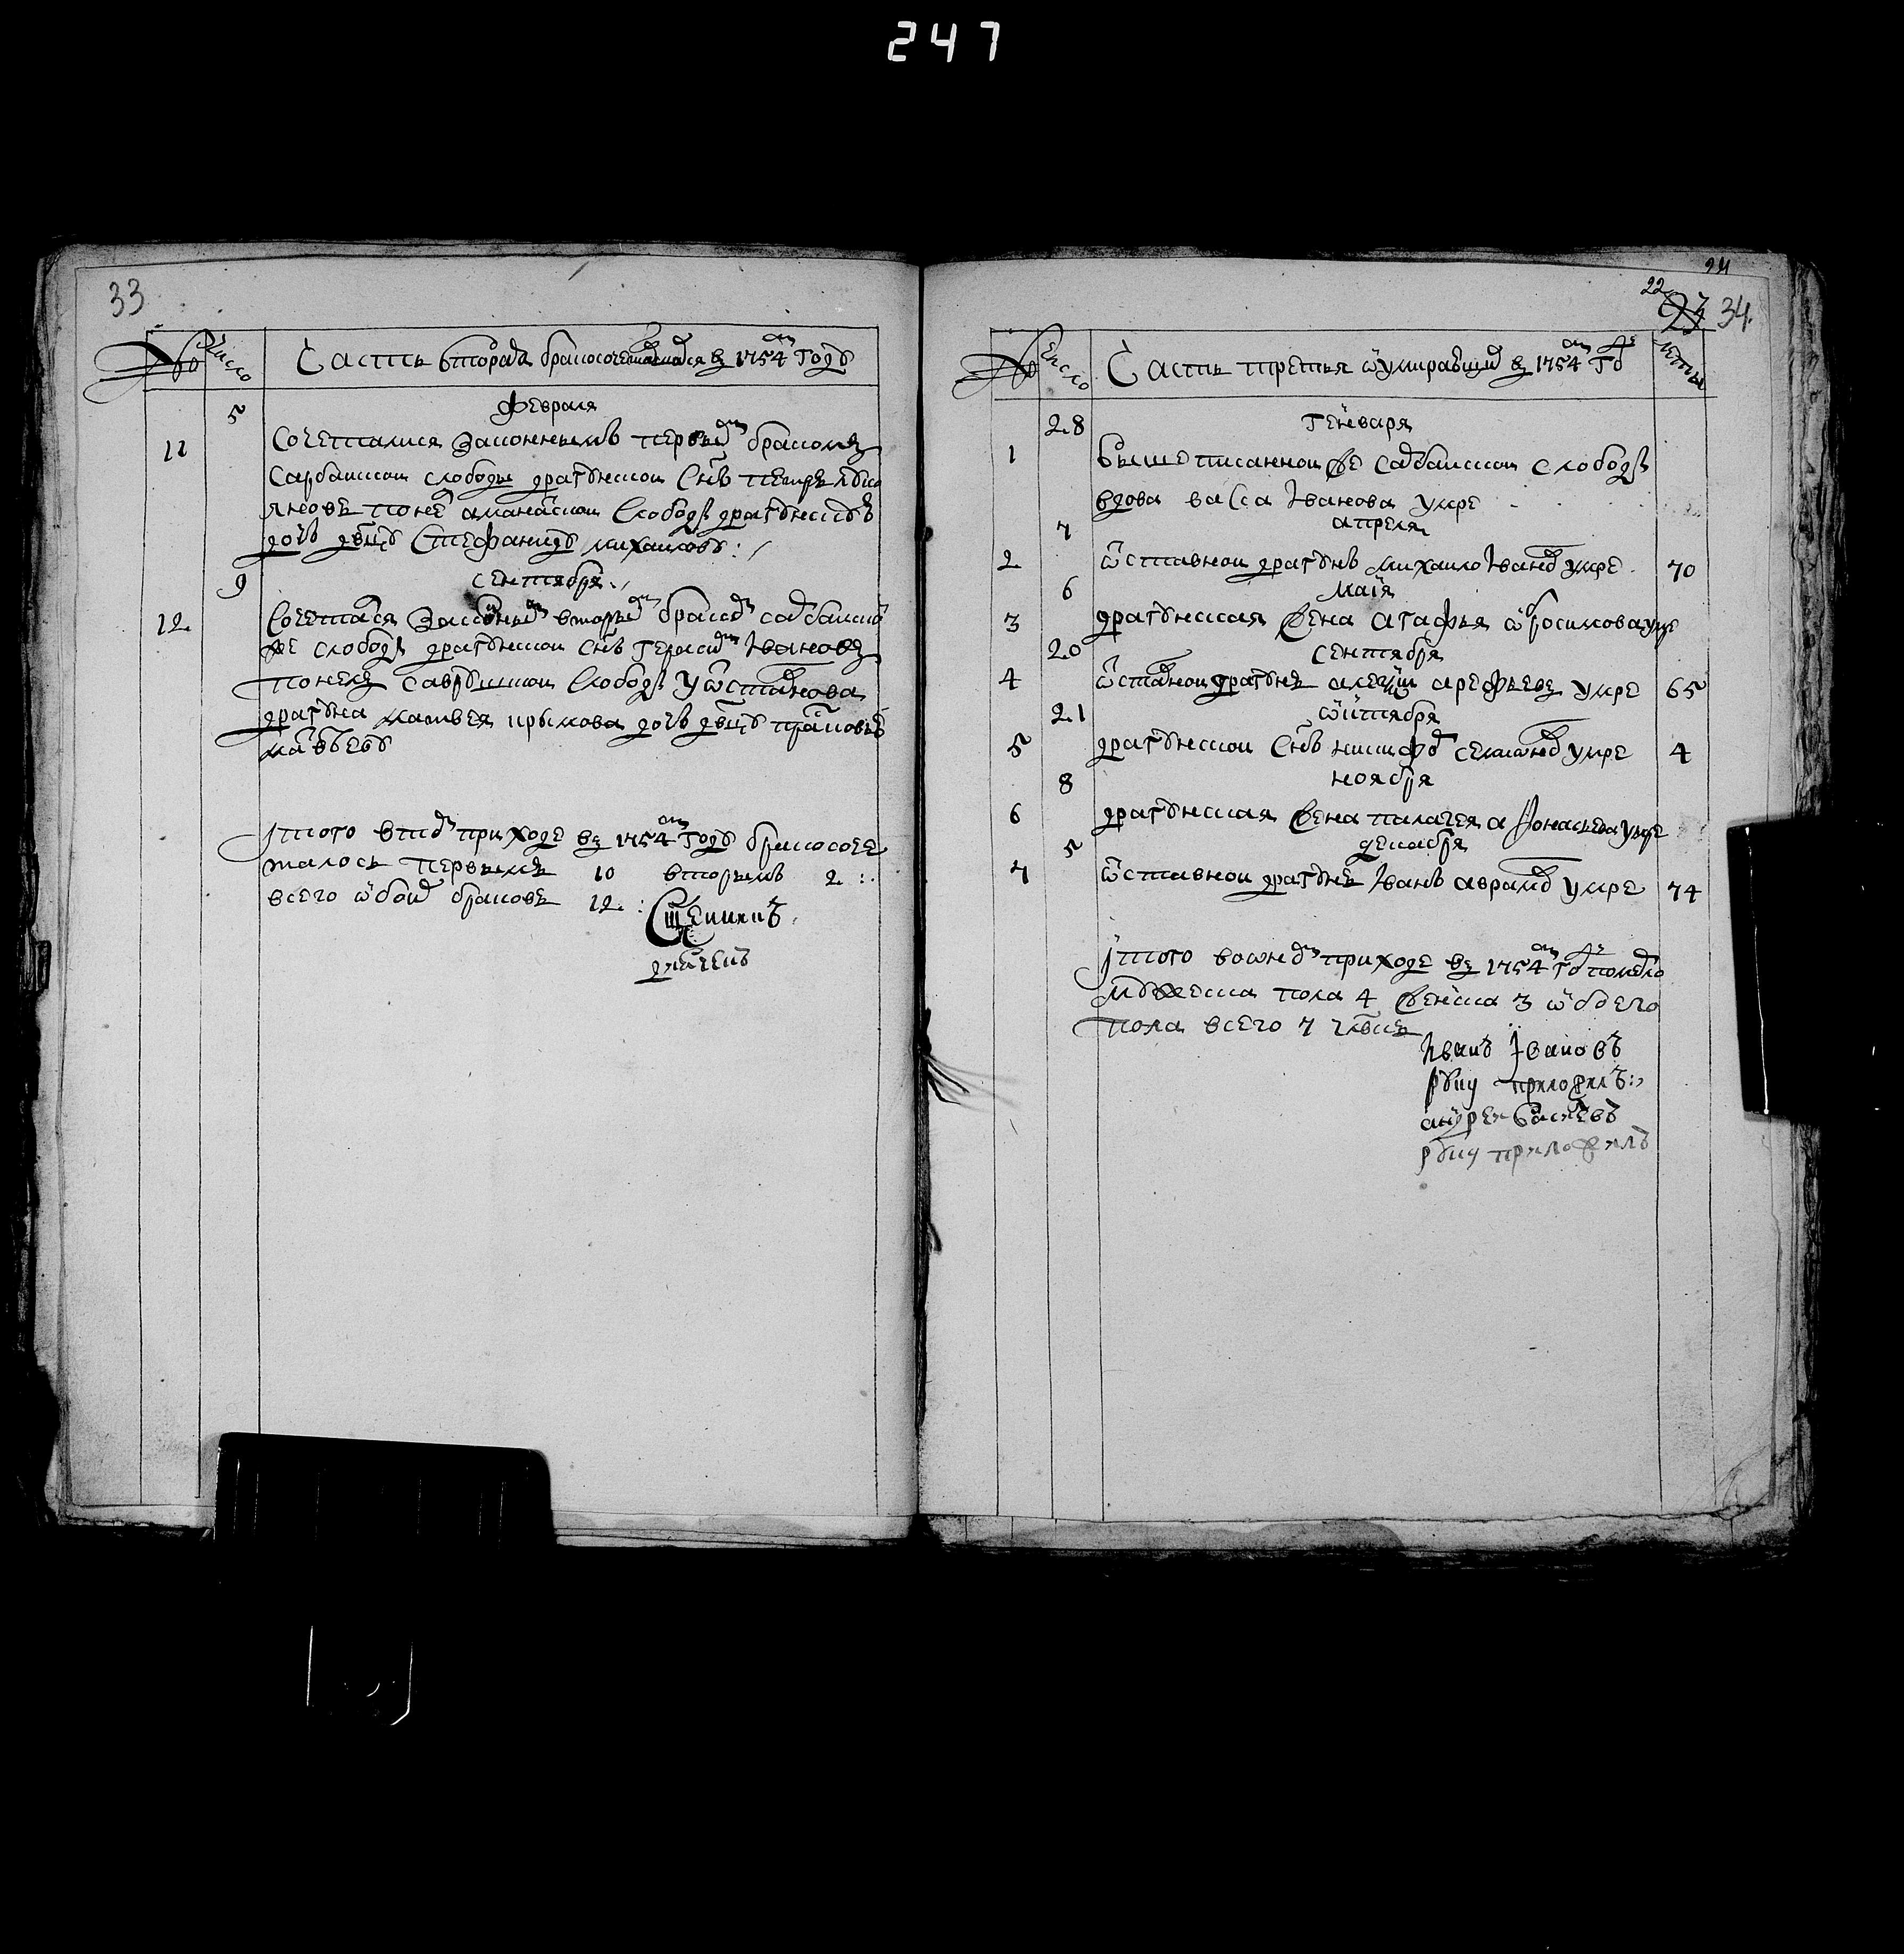 247
33
№ Число Часть вторая бракосочетавшихся въ 1754 м годѣ
5 февраля
11 Сочеталися законнымъ первымъ бракомъ
Сарбайской слободы драгунской снъ Петръ
яковъ понелъ аманацкой слободы драгунскую
дочь двцу Стефаниду михаилову :
9 сентября
12 Сочетался законнымъ вторымъ бракомъ садбайской
же слободы драгунской снъ Герасимъ Ивановъ
понелъ слободы у отставнова
драгуна матвея крылова дочь двцу прасковью
матвѣеву
Итого в томъ приходе въ 1754 м году бракосоче
талось первымъ 10 вторымъ 2 :
всего обоихъ браковъ 12 :
Сщенникъ
24
22
23 34
№ Число Часть третья о умирающихъ въ 1754 м году лѣты
28 Генваря
1 вышеписанной же садбайской слободы
вдова васса Іванова умре
7 апреля
2 отставной драгунъ михаило Ивановъ умре 70
6 маія
3 драгунская жена агафья умре
20 сентября
4 отставной драгунъ алексѣй арефьевъ умре 65
21 октября
5 драгунской снъ никифоръ семеновъ умре 4
8 ноября
6 драгунская жена палагея афонасьева умре
5 декабря
7 отставной драгунъ Іванъ аврамовъ умре 74
Итого во ономъ приходе въ 1754 м году померло
мужеска пола 4 женска 3 обоего
пола всего 7 члвкъ
Иванъ Ивановъ
руку приложилъ :
андрей
руку приложилъ